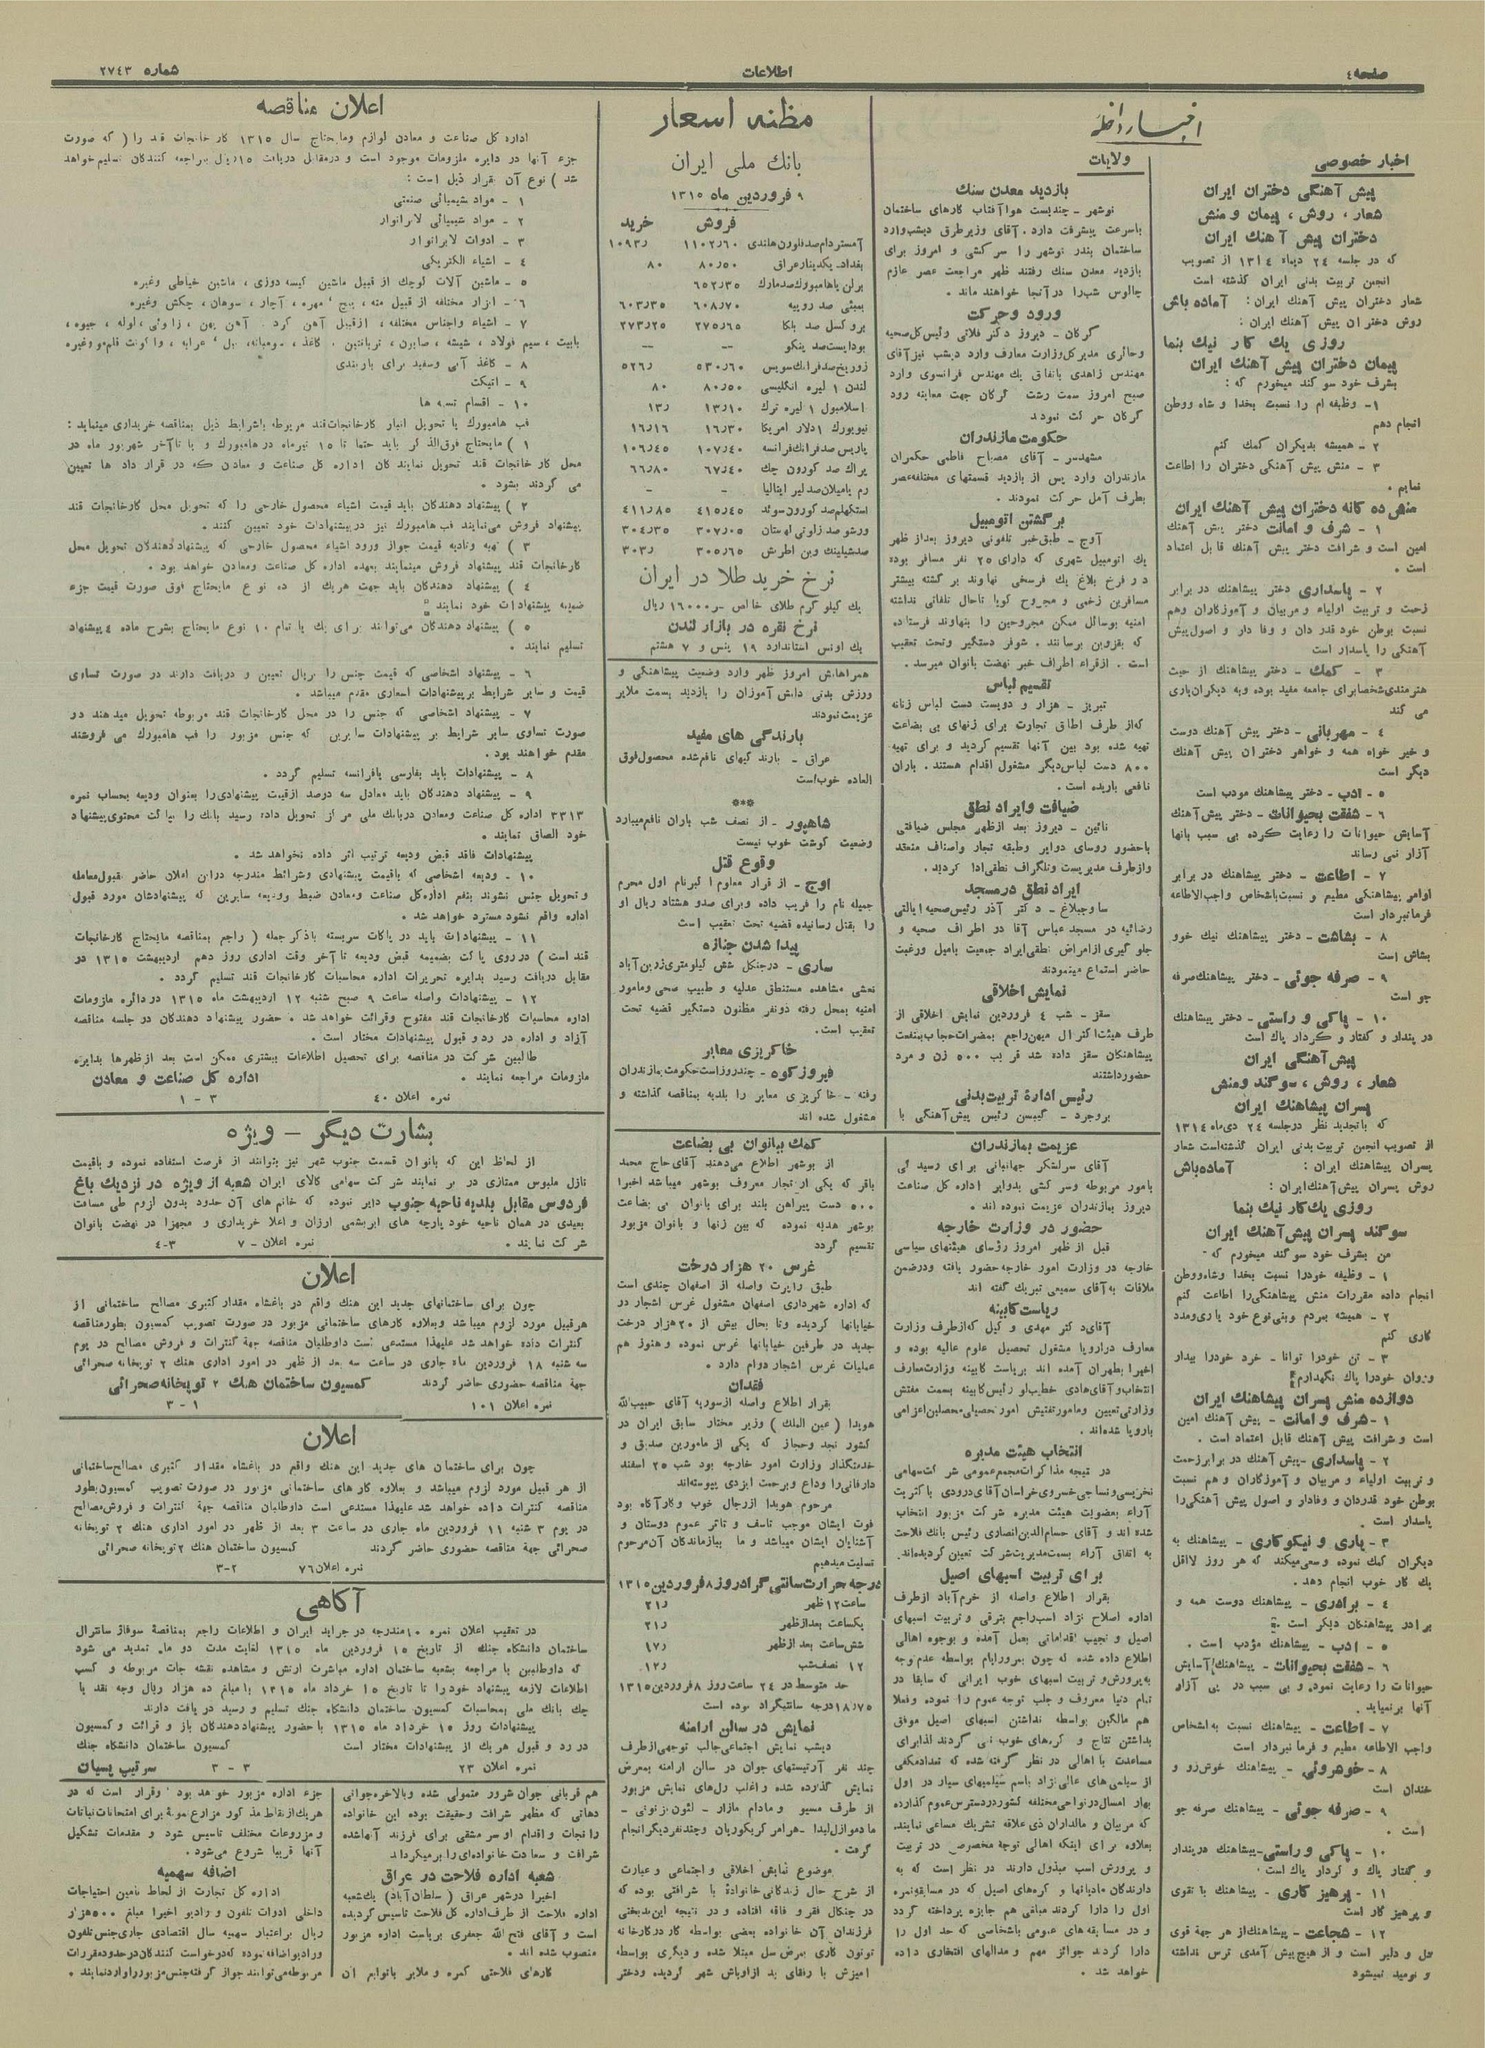 صفحه ٤
اطلاعات
شماره ٢٧٤٣
اخبار داخله
اخبار خصوصی
پیش آهنگی دختران ایران
شعار ، روش ، پیمان و منش
دختران پیش آهنك ایران
که در جلسه ٢٤ دیماه ١٣١٤ از تصویب
انجمن تربیت بدنی ایران گذشته است
شعار دختران پیش آهنك ایران : آماده باش
روش دختران پیش آهنك ایران :
روزی یك کار نیك بنما
پیمان دختران پیش آهنك ایران
بشرف خود سوگند میخورم که :
١- وظیفه ام را نسبت بخدا و شاه ووطن
انجام دهم
٢ - همیشه بدیگران کمك کنم
٣ - منش پیش آهنگی دختران را اطاعت
نمایم .
منش ده گانه دختران پیش آهنك ایران
١ - شرف و امانت - دختر پیش آهنك
امین است و شرافت دختر پیش آهنك قابل اعتماد
است .
٢ - پاسداری - دختر پیشاهنك در برابر
زحمت و تربیت اولیاء و مربیان و آموزگاران وهم
نسبت بوطن خود قدر دان و وفا دار و اصول پیش
آهنگی را پاسدار است
٣ - کمك - دختر پیشاهنك از حیث
هنرمندی شخصا برای جامعه مفید بوده وبه دیگران یاری
می کند
٤ - مهربانی - دختر پیش آهنك دوست
و خیر خواه همه و خواهر دختران پیش آهنك
دیگر است
٥ - ادب - دختر پیشاهنك مودب است
٦ - شفقت بحیوانات - دختر پیش آهنك
آسایش حیوانات را رعایت کرده بی سبب بانها
آزار نمی رساند
٧ - اطاعت - دختر پیشاهنك در برابر
اوامر پیشاهنگی مطیع و نسبت باشخاص واجب الاطاعه
فرمانبردار است
٨ - بشاشت - دختر پیشاهنك نیك خوو
بشاش است
٩ - صرفه جوئی - دختر پیشاهنك صرفه
جو است
١٠ - پاکی و راستی - دختر پیشاهنك
در پندار و گفتار و کردار پاك است
پیش آهنگی ایران
شعار ، روش ، سوگند و منش
پسران پیشاهنك ایران
که باتجدید نظر درجلسه ٢٤ دی ماه ١٣١٤
از تصویب انجمن تربیت بدنی ایران گذشته است شعار
پسران پیشاهنك ایران : آماده باش
روش پسران پیش آهنك ایران :
روزی یك کار نیك بنما
سوگند پسران پیش آهنك ایران
من بشرف خود سوگند میخورم که -
١ - وظیفه خودرا نسبت بخدا وشاه ووطن
انجام داده مقررات منش پیشاهنگی را اطاعت کنم
٢ - همیشه بمردم وبنی نوع خود یاری ومدد
کاری کنم
٣ - تن خودرا توانا - خرد خودرا بیدار
وروان خودرا پاك نگهدارم
دوازده منش پسران پیشاهنك ایران
١ - شرف و امانت - پیش آهنك امین
است و شرافت پیش آهنك قابل اعتماد است .
٢ - پاسداری - پیش آهنك در برابر زحمت
و تربیت اولیاء و مربیان و آموزگاران و هم نسبت
بوطن خود قدردان و وفادار و اصول پیش آهنگی را
پاسدار است .
٣ - یاری و نیکوکاری - پیشاهنك به
دیگران کمك نموده وسعی میکند که هر روز لااقل
یك کار خوب انجام دهد .
٤ - برادری - پیشاهنك دوست همه و
برادر پیشاهنکان دیگر است .
٥ - ادب - پیشاهنك مؤدب است .
٦ - شفقت بحیوانات - پیشاهنك آسایش
حیوانات را رعایت نموده و بی سبب در پی آزار
آنها برنمیاید .
٧ - اطاعت - پیشاهنك نسبت به اشخاص
واجب الاطاعه مطیع و فرمانبردار است
٨ - خوشروئی - پیشاهنك خوش رو و
خندان است
٩ - صرفه جوئی - پیشاهنك صرفه جو
است .
١٠ - پاکی و راستی - پیشاهنك در پندار
و گفتار پاك و کردار پاك است
١١ - پرهیز کاری - پیشاهنك با تقوی
و پرهیز کار است
١٢ - شجاعت - پیشاهنك از هر جهة قوی
دل و دلیر است و از هیچ پیش آمدی ترس نداشته
و نومید نمیشود
ولایات
بازدید معدن سنك
نوشهر - چندیست هوا آفتاب کارهای ساختمان
باسرعت پیشرفت دارد . آقای وزیر طرق دیشب وارد
ساختمان بندر نوشهر را سرکشی و امروز برای
بازدید معدن سنك رفتند ظهر مراجعت عصر عازم
چالوس شب را در آنجا خواهند ماند .
ورود وحرکت
گرگان - دیروز دکتر فلاتی رئیس کل صحیه
وحائری مدیر کل وزارت معارف وارد دیشب نیز آقای
مهندس زاهدی باتفاق یك مهندس فرانسوی وارد
صبح امروز سمت رشت گرگان جهت معاینه رود
گرگان حرکت نمودند
حکومت مازندران
مشهدسر - آقای مصباح فاطمی حکمران
مازندران وارد پس از بازدید قسمتهای مختلفه عصر
بطرف آمل حرکت نمودند .
برگشتن اتومبیل
آوج - طبق خبر تلفونی دیروز بعد از ظهر
یك اتومبیل شهری که دارای ٢٥ نفر مسافر بوده
در فرخ بلاغ یك فرسخی نهاوند برگشته بیشتر
مسافرین زخمی و مجروح گویا تاحال تلفاتی نداشته
امنیه بوسائل ممکن مجروحین را بنهاوند فرستاده
که بقزوین برسانند . شوفر دستگیر وتحت تعقیب
است . ازقراء اطراف خبر نهضت بانوان میرسد .
تقسیم لباس
تبریز - هزار و دویست دست لباس زنانه
که از طرف اطاق تجارت برای زنهای بی بضاعت
تهیه شده بود بین آنها تقسیم گردید و برای تهیه
٨٠٠ دست لباس دیگر مشغول اقدام هستند . باران
نافعی باریده است .
ضیافت وایراد نطق
نائین - دیروز بعد ازظهر مجلس ضیافتی
باحضور روسای دوایر وطبقه تجار واصناف منعقد
وازطرف مدیر پست وتلگراف نطقی ادا گردید .
ایراد نطق درمسجد
ساوجبلاغ - دکتر آذر رئیس صحیه ایالتی
رضائیه در مسجد عباس آقا در اطراف صحیه و
جلو گیری از امراض نطقی ایراد جمعیت بامیل ورغبت
حاضر استماع مینمودند
نمایش اخلاقی
سقز - شب ٤ فروردین نمایش اخلاقی از
طرف هیئت اکتر ال میهن راجع بمضرات حجاب بمنفعت
پیشاهنکان سقز داده شد قریب ٥٠٠ زن و مرد
حضور داشتند
رئیس ادارهٔ تربیت بدنی
بروجرد - گیبسن رئیس پیش آهنگی با
عزیمت بمازندران
آقای سرلشگر جهانبانی برای رسیدگی
بامور مربوطه وسرکشی بدوایر اداره کل صناعت
دیروز بمازندران عزیمت نموده اند .
حضور در وزارت خارجه
قبل از ظهر امروز رؤسای هیئتهای سیاسی
خارجه در وزارت امور خارجه حضور یافته ودرضمن
ملاقات به آقای سمیعی تبریك گفته اند
ریاست کابینه
آقای دکتر مهدی وکیل که از طرف وزارت
معارف دراروپا مشغول تحصیل علوم عالیه بوده و
اخیرا بطهران آمده اند بریاست کابینه وزارت معارف
انتخاب وآقای هادی خطیب لو رئیس کابینه بسمت مفتش
وزارتی تعیین ومامور تفتیش امور تحصیلی محصلین اعزامی
باروپا شده اند .
انتخاب هیئت مدیره
در نتیجه مذاکرات مجمع عمومی شرکت سهامی
نخریسی ونساجی خسروی خراسان آقای درودی با کثریت
آراء بعضویت هیئت مدیره شرکت مزبور انتخاب
شده اند و آقای حسام الدین انصاری رئیس بانك فلاحت
به اتفاق آراء بسمت مدیریت شرکت تعیین گردیده اند.
برای تربیت اسبهای اصیل
بقرار اطلاع واصله از خرم آباد ازطرف
اداره اصلاح نژاد اسب راجع بترقی و تربیت اسبهای
اصیل و نجیب اقداماتی بعمل آمده و بوجوه اهالی
اطلاع داده شده که چون بمرور ایام بواسطه عدم وجه
به پرورش و تربیت اسبهای خوب ایرانی که سابقا در
تمام دنیا معروف و جلب توجه عموم را نموده وفعلا
هم مالکین بواسطه نداشتن اسبهای اصیل موفق
بداشتن نتاج و کره های خوب نمی گردند لذا برای
مساعدت با اهالی در نظر گرفته شده که تعداد مکفی
از سیلمی های عالی نژاد باسم سیلمیهای سیار در اول
بهار امسال درنواحی مختلفه کشور در دسترس عموم گذارده
که مربیان و مالداران ذی علاقه تشریك مساعی نمایند.
بعلاوه برای اینکه اهالی توجه مخصوص در تربیت
و پرورش اسب مبذول دارند در نظر است که به
دارندگان مادیانها و کره های اصیل که در مسابقه نمره
اول را دارا گردند مبالغی هم جایزه پرداخته گردد
و در مسابقه های عمومی باشخاصی که حد اول را
دارا گردند جوائز مهم و مدالهای افتخاری داده
خواهد شد .
مظنه اسعار
بانك ملی ایران
٩ فروردین ماه ١٣١٥
فروش خرید
آمستردام صد فلورن هلندی ١١٠٢٫٦٠ ١٠٩٣٫
بغداد یکدینار عراق ٨٠٫٥٠ ٨٠
برلن یاهامبورك صد مارك ٦٥٢٫٣٥
بمبئی صد روپیه ٦٠٨٫٧٠ ٦٠٣٫٣٥
بروکسل صد بلکا ٢٧٥٫٦٥ ٢٧٣٫٢٥
بوداپست صد پنکو -- --
زوریخ صد فرانك سویس ٥٣٠٫٦٠ ٥٢٦٫
لندن ١ لیره انگلیسی ٨٠٫٥٠ ٨٠
اسلامبول ١ لیره ترك ١٣٫١٠ ١٣٫
نیویورك ١ دلار امریکا ١٦٫٣٠ ١٦٫١٦
پاریس صد فرانك فرانسه ١٠٧٫٤٠ ١٠٦٫٤٥
پراك صد کورون چك ٦٧٫٤٠ ٦٦٫٨٠
رم یا میلان صد لیر ایتالیا - -
استکهلم صد کورون سوئد ٤١٥٫٤٥ ٤١١٫٨٥
ورشو صد زلوتی لهستان ٣٠٧٫٠٥ ٣٠٤٫٣٥
صد شیلینك وین اطریش ٣٠٥٫٦٥ ٣٠٣٫
نرخ خرید طلا در ایران
یك کیلو گرم طلای خالص ١٦٠٠٠ ریال
نرخ نقره در بازار لندن
یك اونس استاندارد ١٩ پنس و ٧ هشتم
همراهانش امروز ظهر وارد وضعیت پیشاهنگی و
ورزش بدنی دانش آموزان را بازدید بسمت ملایر
عزیمت نمودند
بارندگی های مفید
عراق - بارندگیهای نافع شده محصول فوق
العاده خوب است
***
شاهپور - از نصف شب باران نافع میبارد
وضعیت گوشت خوب نیست
وقوع قتل
اوج - از قرار معلوم اکبر نام اول محرم
جمیله نام را فریب داده وبرای صدو هشتاد ریال او
را بقتل رسانیده قضیه تحت تعقیب است .
پیدا شدن جنازه
ساری - درجنگل شش کیلومتری زرین آباد
نعشی مشاهده مستنطق عدلیه و طبیب صحی ومامور
امنیه بمحل رفته دونفر مظنون دستگیر قضیه تحت
تعقیب است .
خاکریزی معابر
فیروز کوه - چندروز است حکومت بمازندران
رفته - خاکریزی معابر را بلدیه بمناقصه گذاشته و
مشغول شده اند
کمك ببانوان بی بضاعت
از بوشهر اطلاع می دهند آقای حاج محمد
باقر که یکی از تجار معروف بوشهر میباشد اخیرا
٥٠٠ دست پیراهن بلند برای بانوان بی بضاعت
بوشهر هدیه نموده که بین زنها و بانوان مزبور
تقسیم گردد
غرس ٢٠ هزار درخت
طبق راپرت واصله از اصفهان چندی است
که اداره شهرداری اصفهان مشغول غرس اشجار در
خیابانها گردیده وتا بحال بیش از ٢٠ هزار درخت
جدید در طرفین خیابانها غرس نموده و هنوز هم
عملیات غرس اشجار دوام دارد .
فقدان
بقرار اطلاع واصله از سوریه آقای حبیب الله
هویدا ( عین الملك ) وزیر مختار سابق ایران در
کشور نجد وحجاز که یکی از مامورین صدیق و
خدمتگذار وزارت امور خارجه بود شب ٢٥ اسفند
دارفانی را وداع و برحمت ایزدی پیوسته اند
مرحوم هویدا ازرجال خوب وکار آگاه بود
فوت ایشان موجب تاسف و تاثر عموم دوستان و
آشنایان ایشان میباشد و ما ببازماندگان آن مرحوم
تسلیت میدهیم
درجه حرارت سانتی گراد روز ٨ فروردین ١٣١٥
ساعت ١٢ ظهر ٢١٫
یکساعت بعد ازظهر ٢١٫
شش ساعت بعد ازظهر ١٧٫
١٢ نصف شب ١٢٫
حد متوسط در ٢٤ ساعت روز ٨ فروردین ١٣١٥
١٨٫٧٥ درجه سانتیگراد بوده است
نمایش در سالن ارامنه
دیشب نمایش اجتماعی جالب توجهی ازطرف
چند نفر آرتیستهای جوان در سالن ارامنه بمعرض
نمایش گذارده شده و اغلب رل های نمایش مزبور
از طرف مسیو و مادام مازار - لئون بزنونی -
مادموازل لیدا - هرامر کریکوریان وچند نفر دیگر انجام
گرفت .
موضوع نمایش اخلاقی و اجتماعی و عبارت
از شرح حال زندگانی خانوادهٔ با شرافتی بوده که
در چنگال فقر و فاقه افتاده و در نتیجه این بدبختی
فرزندان آن خانواده بعضی بواسطه کار در کارخانه
توتون کاری بمرض سل مبتلا شده و دیگری بواسطه
آمیزش با رفقای بد از اوباش شهر گردیده ودختر
هم قربانی جوان شرور متمولی شده وبالاخره جوانی
دهاتی که مظهر شرافت وحقیقت بوده این خانواده
را نجات و اقدام او سرمشقی برای فرزند آنها شده
شرافت و سعادت خانواده ای را بر میگرداند
شعبه اداره فلاحت در عراق
اخیرا درشهر عراق ( سلطان آباد ) یك شعبه
اداره فلاحت از طرف اداره کل فلاحت تاسیس گردیده
است و آقای فتح الله جعفری بریاست اداره مزبور
منصوب شده اند .
کارهای فلاحتی کمره و ملایر باتوابع آن
جزء اداره مزبور خواهد بود وقرار است که در
هریك از نقاط مذکور مزارع نمونهٔ برای امتحانات نباتات
و مزروعات مختلف تاسیس شود و مقدمات تشکیل
آنها قریبا شروع می شود .
اضافه سهمیه
اداره کل تجارت از لحاظ تامین احتیاجات
داخلی ادوات تلفون و رادیو اخیرا مبلغ ٥٠٠ هزار
ریال براعتبار سهمیه سال اقتصادی جاری جنس تلفون
ورادیو اضافه نموده که درخواست کنندگان در حدود مقررات
مربوطه می توانند جواز گرفته جنس مزبور را وارد نمایند .
اعلان مناقصه
اداره کل صناعت و معادن لوازم ومایحتاج سال ١٣١٥ کارخانجات قند را ( که صورت
جزء آنها در دایره ملزومات موجود است و درمقابل دریافت ١٥ ریال بمراجعه کنندگان تسلیم خواهد
شد ) نوع آن بقرار ذیل است :
١ - مواد شیمیائی صنعتی
٢ - مواد شیمیائی لابراتوار
٣ - ادوات لابراتوار
٤ - اشیاء الکتریکی
٥ - ماشین آلات کوچك از قبیل ماشین کیسه دوزی ، ماشین خیاطی وغیره
٦ - ابزار مختلفه از قبیل مته ، پیچ مهره ، آچار ، سوهان ، چکش وغیره
٧ - اشیاء واجناس مختلفه ، ازقبیل آهن گرد . آهن پهن ، زاوئی ، لوله ، جیوه ،
بابیت ، سیم فولاد ، شیشه ، صابون ، نخ بافتن . کاغذ ، سومباده ، بیل عرابه ، واگونت قلم وغیره
٨ - کاغذ آبی وسفید برای باربندی
٩ - اتیکت
١٠ - اقسام تسمه ها
فب هامبورك یا تحویل انبار کارخانجات قند مربوطه باشرایط ذیل بمناقصه خریداری مینماید :
١ ) مایحتاج فوق الذکر باید حتما تا ١٥ تیرماه در هامبورك و یا تاآخر شهریور ماه در
محل کارخانجات قند تحویل نمایندگان اداره کل صناعت و معادن که در قرار داد ها تعیین
می گردند بشود .
٢ ) پیشنهاد دهندگان باید قیمت اشیاء محصول خارجی را که تحویل محل کارخانجات قند
پیشنهاد فروش می نمایند فب هامبورك نیز در پیشنهادات خود تعیین کنند .
٣ ) تهیه وتادیه قیمت جواز ورود اشیاء محصول خارجی که پیشنهاد دهندگان تحویل محل
کارخانجات قند پیشنهاد فروش مینمایند بعهده اداره کل صناعت ومعادن خواهد بود .
٤ ) پیشنهاد دهندگان باید جهت هریك از ده نوع مایحتاج فوق صورت قیمت جزء
ضمیمه پیشنهادات خود نمایند
٥ ) پیشنهاد دهندگان می توانند برای یك یا تمام ١٠ نوع مایحتاج بشرح ماده ٤ پیشنهاد
تسلیم نمایند .
٦ - پیشنهاد اشخاصی که قیمت جنس را بریال تعیین و دریافت دارند در صورت تساوی
قیمت و سایر شرایط بر پیشنهادات اسعاری مقدم میباشد .
٧ - پیشنهاد اشخاصی که جنس را در محل کارخانجات قند مربوطه تحویل میدهند در
صورت تساوی سایر شرایط بر پیشنهادات سایرین که جنس مزبور را فب هامبورك می فروشند
مقدم خواهند بود .
٨ - پیشنهادات باید بفارسی یافرانسه تسلیم گردد .
٩ - پیشنهاد دهندگان باید معادل سه درصد ازقیمت پیشنهادی را بعنوان ودیعه بحساب نمره
٣٣١٣ اداره کل صناعت ومعادن دربانك ملی مرکز تحویل داده رسید بانك را بپاکت محتوی پیشنهاد
خود الصاق نمایند .
پیشنهادات فاقد قبض ودیعه ترتیب اثر داده نخواهد شد .
١٠ - ودیعه اشخاصی که باقیمت پیشنهادی وشرائط مندرجه دراین اعلان حاضر بقبول معامله
و تحویل جنس نشوند بنفع اداره کل صناعت ومعادن ضبط وودیعه سایرین که پیشنهادشان مورد قبول
اداره واقع نشود مسترد خواهد شد .
١١ - پیشنهادات باید در پاکات سربسته باذکر جمله ( راجع بمناقصه مایحتاج کارخانجات
قند است ) در روی پاکت بضمیمه قبض ودیعه تاآخر وقت اداری روز دهم اردیبهشت ١٣١٥ در
مقابل دریافت رسید بدایره تحریرات اداره محاسبات کارخانجات قند تسلیم گردد .
١٢ - پیشنهادات واصله ساعت ٩ صبح شنبه ١٢ اردیبهشت ماه ١٣١٥ در دائره ملزومات
اداره محاسبات کارخانجات قند مفتوح وقرائت خواهد شد . حضور پیشنهاد دهندگان در جلسه مناقصه
آزاد و اداره در رد و قبول پیشنهادات مختار است .
طالبین شرکت در مناقصه برای تحصیل اطلاعات بیشتری ممکن است بعد ازظهرها بدایره
ملزومات مراجعه نمایند .
اداره کل صناعت و معادن
نمره اعلان ٤٠ ٣ - ١
بشارت دیگر - ویژه
از لحاظ این که بانوان قسمت جنوب شهر نیز بتوانند از فرصت استفاده نموده و باقیمت
نازل ملبوس ممتازی در بر نمایند شرکت سهامی کالای ایران شعبه از ویژه در نزدیك باغ
فردوس مقابل بلدیه ناحیه جنوب دایر نموده که خانم های آن حدود بدون لزوم طی مسافت
بعیدی در همان ناحیه خود پارچه های ابریشمی ارزان و اعلا خریداری و مجهزا در نهضت بانوان
شرکت نمایند .
نمره اعلان - ٧ ٣-٤
اعلان
چون برای ساختمانهای جدید این هنك واقع در باغشاه مقدار کثیری مصالح ساختمانی از
هرقبیل مورد لزوم میباشد وبعلاوه کارهای ساختمانی مزبور در صورت تصویب کمسیون بطور مناقصه
کنترات داده خواهد شد علیهذا مستدعی است داوطلبان مناقصه جهة کنترات و فروش مصالح در یوم
سه شنبه ١٨ فروردین ماه جاری در ساعت سه بعد از ظهر در امور اداری هنك ٢ توپخانه صحرائی
جهة مناقصه حضوری حاضر گردند کمسیون ساختمان هنك ٢ توپخانه صحرائی
نمره اعلان ١٠١ ١ - ٣
اعلان
چون برای ساختمان های جدید این هنك واقع در باغشاه مقدار کثیری مصالح ساختمانی
از هر قبیل مورد لزوم میباشد و بعلاوه کار های ساختمانی مزبور در صورت تصویب کمسیون بطور
مناقصه کنترات داده خواهد شد علیهذا مستدعی است داوطلبان مناقصه جهة کنترات و فروش مصالح
در یوم ٣ شنبه ١١ فروردین ماه جاری در ساعت ٣ بعد از ظهر در امور اداری هنك ٢ توپخانه
صحرائی جهة مناقصه حضوری حاضر گردند کمسیون ساختمان هنك ٢ توپخانه صحرائی
نمره اعلان ٧٦ ٢-٣
آگاهی
در تعقیب اعلان نمره ١٠ مندرجه در جراید ایران و اطلاعات راجع بمناقصهٔ سوفاژ سانترال
ساختمان دانشگاه جنك از تاریخ ١٥ فروردین ماه ١٣١٥ لغایت مدت دو ماه تمدید می شود
که داوطلبین با مراجعه بشعبه ساختمان اداره مباشرت ارتش و مشاهده نقشه جات مربوطه و کسب
اطلاعات لازمه پیشنهاد خود را تا تاریخ ١٥ خرداد ماه ١٣١٥ با مبلغ ده هزار ریال وجه نقد یا
چك بانك ملی بمحاسبات کمسیون ساختمان دانشگاه جنك تسلیم و رسید دریافت دارند
پیشنهادات روز ١٥ خرداد ماه ١٣١٥ باحضور پیشنهاد دهندگان باز و قرائت و کمسیون
در رد و قبول هریك از پیشنهادات مختار است کمسیون ساختمان دانشگاه جنك
نمره اعلان ٢٣ ٣ - ٣ سرتیپ پسیان